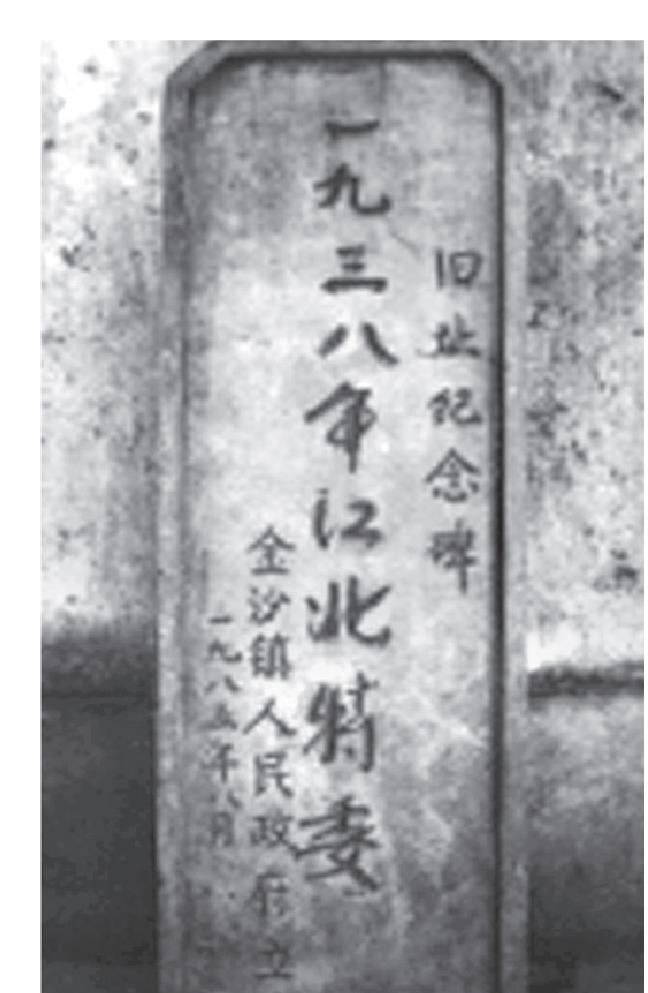 一九三八年江北特委
旧址纪念碑
金沙镇人民政府立
一九八五年八月